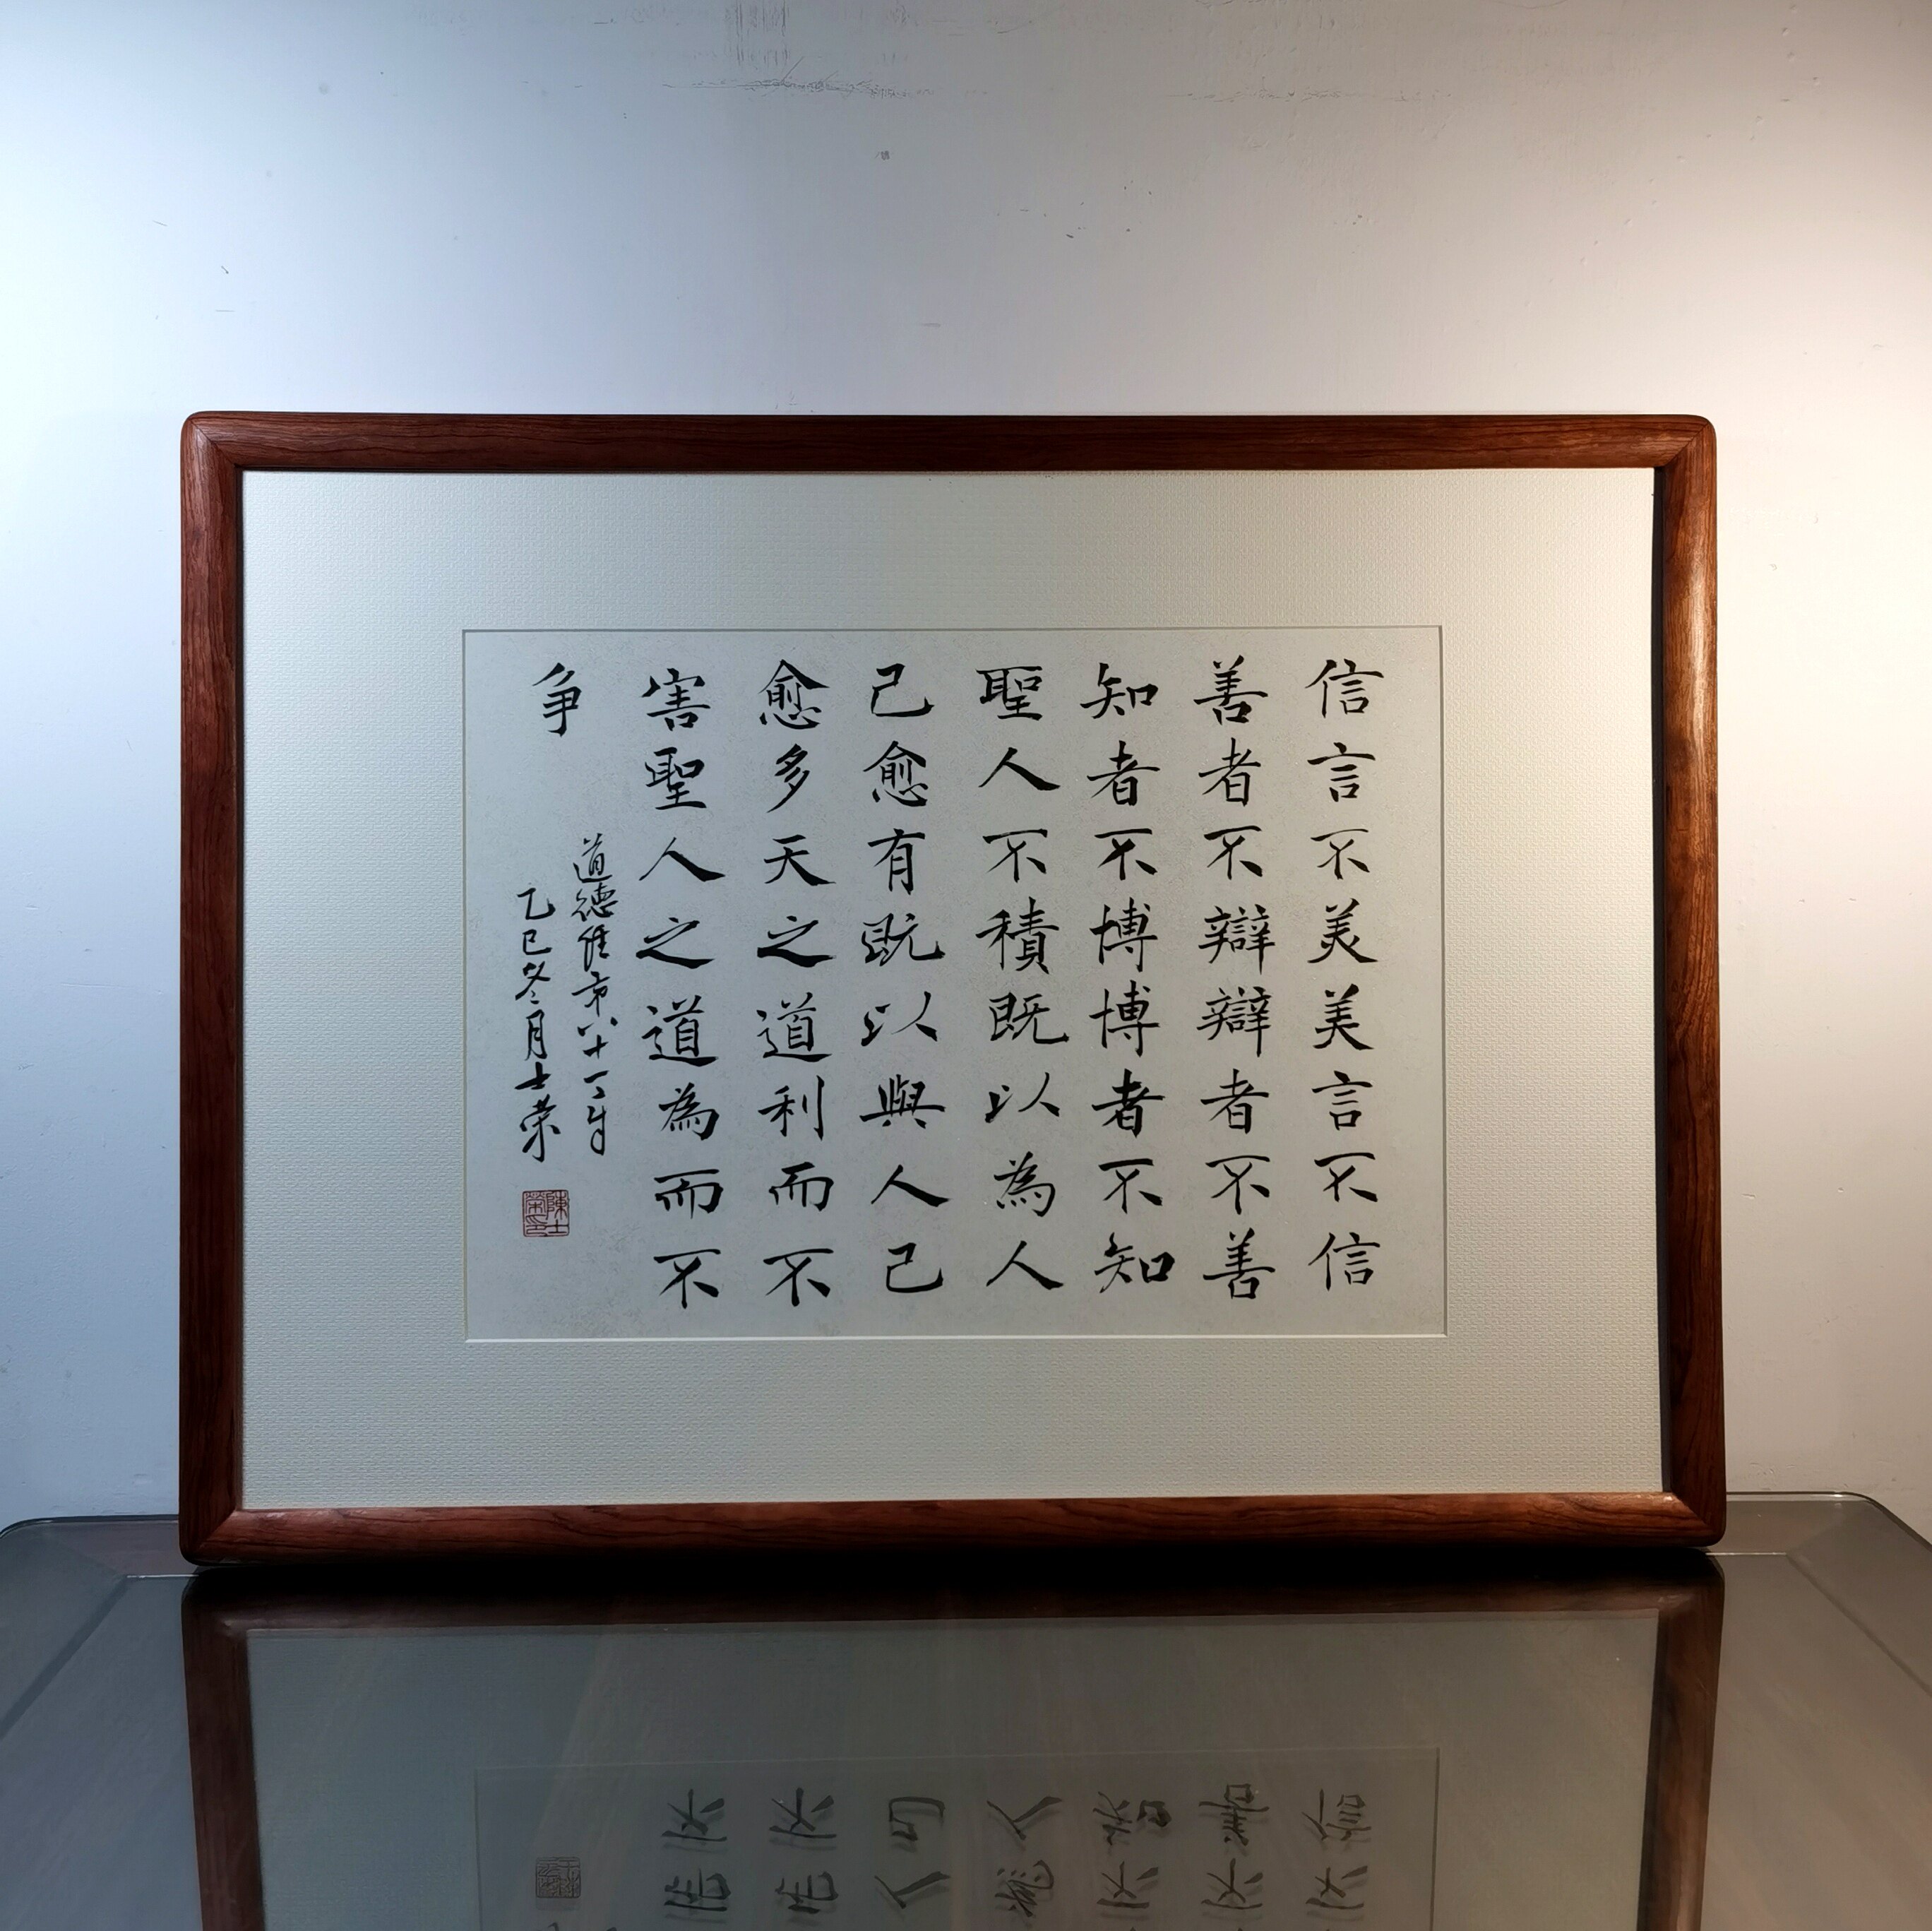 信言不美美言不信
善者不辯辯者不善
知者不博博者不知
聖人不積既以為人
己愈有既以與人己
愈多天之道利而不
害聖人之道為而不
争
道德經第八十一章
乙巳冬月士荣
陳士榮印